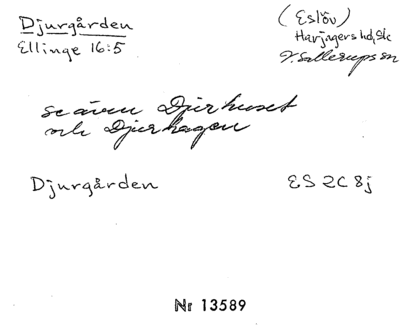 Djurgården (Eslöv)
Ellinge 16:5 Harjagers hd, Sk
V. Sallerups sn
se även Djurhuset
och Djurhagen
Djurgården ES 2C 8j
Nr 13589